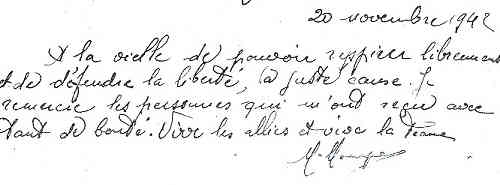 20 novembre 1942
A la vielle de pouvoir respirer librement
et de défendre la liberté, la juste cause. Je
remercie les personnes qui m'ont reçu avec
tant de bonté. Vive les alliés et vive la France